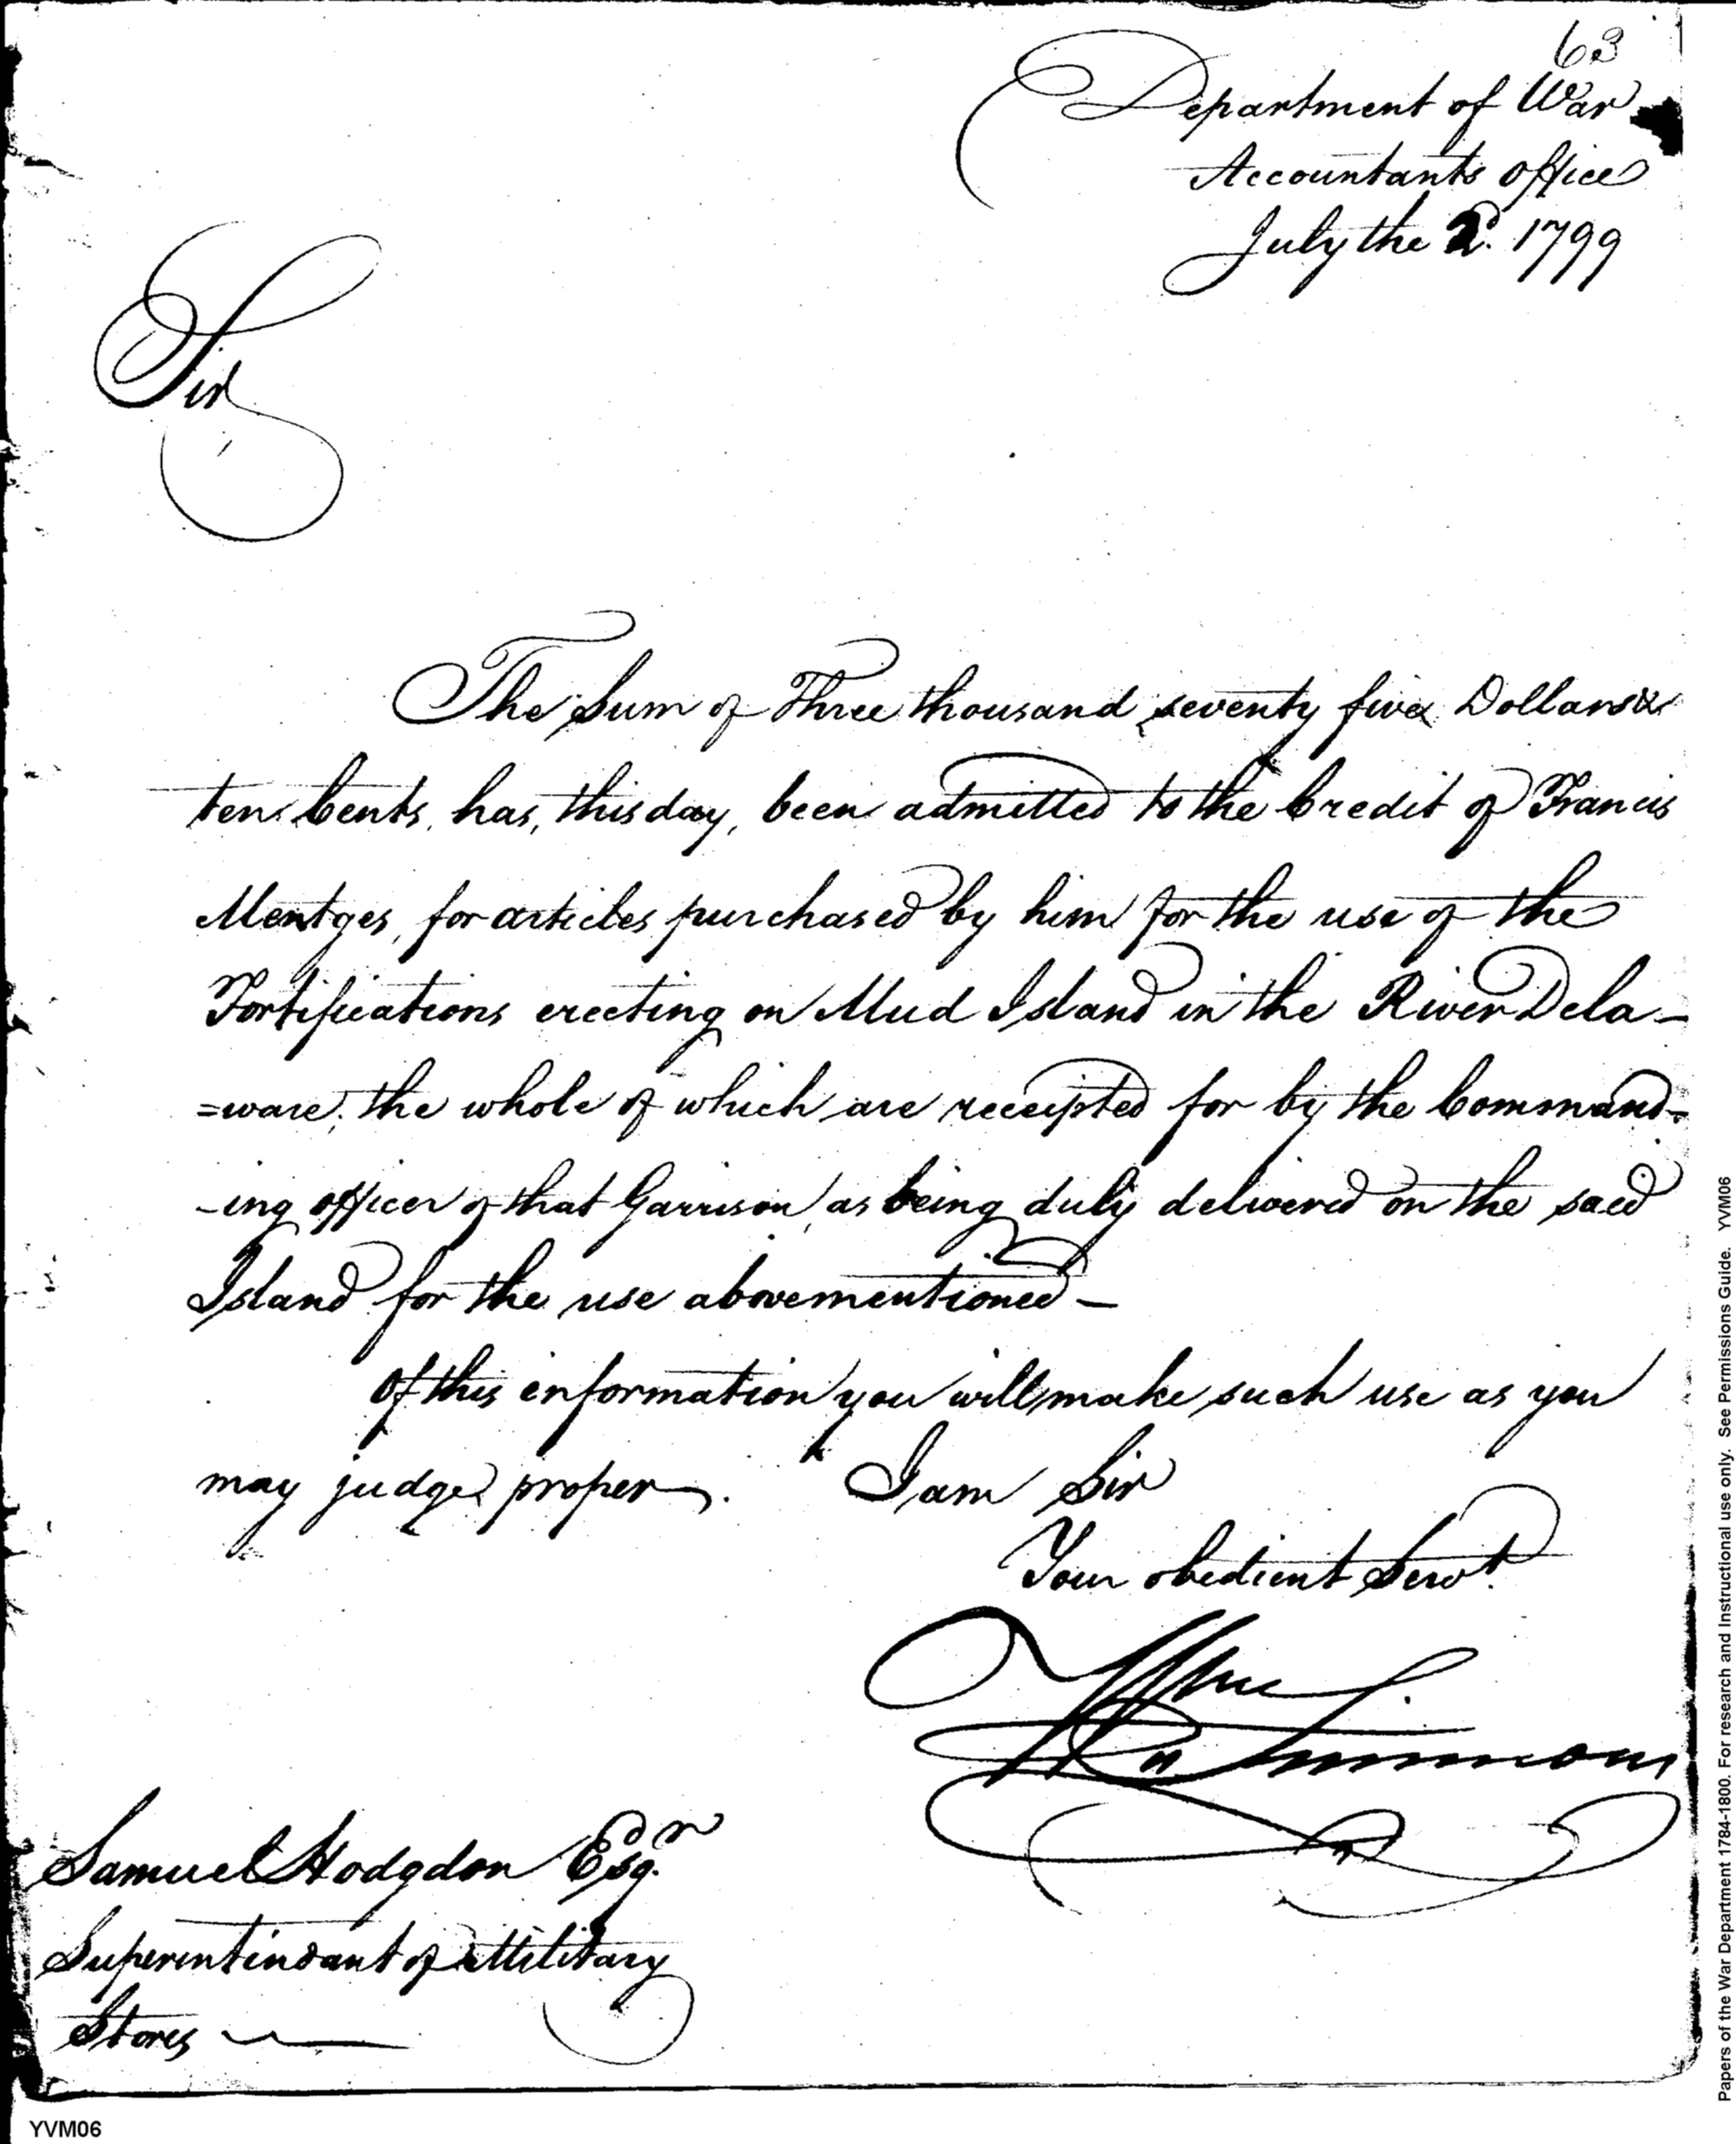 63
Department of War
Accountants office
July the 2d. 1799
Sir
The Sum of Three thousand seventy five Dollars &
ten Cents, has, this day, been admitted to the Credit of Francis
Mentges, for articles purchased by him for the use of the
Fortifications erecting on Mud Island in the River Dela-
=ware; the whole of which are receipted for by the Command-
-ing officer of that Garrison, as being duly delivered on the said
Island for the use abovementioned—
Of this information you will make such use as you
may judge proper. I am Sir
Your obedient Servt.
Wm Simmons
Samuel Hodgdon Esqr.
Superintindant of Military
Stores
YVM06
Papers of the War Department 1784-1800. For research and Instructional use only. See Permissions Guide. YVM06